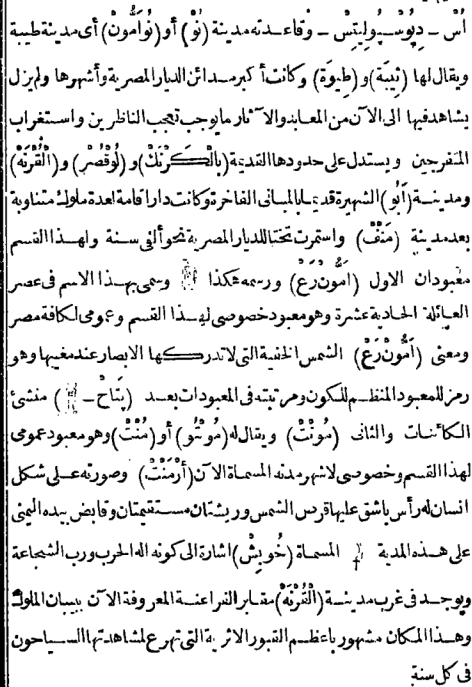 أس ـ ديُوسْـپُولِيتِسْ ـ وقاعدته مدينة (نُوْ) أو (نُوَامُون) أى مدينة طيبة
ويقال لها (تِيبَة) و(طِيوَة) وكانت أكبر مدائن الديار المصرية وأشهرها ولم يزل
يشاهد فيها الى الآن من المعابد والآثار ما يوجب تعجب الناظرين واستغراب
المتفرجين ويستدل على حدودها القديمة (بالكَرْنَكْ) و(لُوقْصُر) و(الْقُرْنَه)
ومدينة (آبُو) الشهيرة قديما بالمبانى الفاخرة وكانت دارا قامة لعدة ملوك متناوبة
بعد مدينة (مَنْفْ) واستمرت تختا للديار المصرية نحو ألفى سنة ولهذا القسم
معبودان الاول (امُّونْ رَعْ) ورسمه هكذا وسمى بهذا الاسم فى عصر
العائلة الحادية عشرة وهو معبود خصوصى لهذا القسم وعمومى لكافة مصر
ومعنى (أَمُّونْ رَعْ) الشمس الخفية التى لا تدركها الابصار عند مغيبها وهو
رمز للمعبود المنظم للكون ومرتبته فى المعبودات بعد (پْتَاح ـ ) منشئ
الكائنات والثانى (مُونْتْ) ويقال له (مُونْتُو) أو (مُنْتْ) وهو معبود عمومى
لهذا القسم وخصوصى لاشهر مدنه المسماة الآن (أرْمَنْتْ) وصورته على شكل
انسان له رأس باشق عليها قرص الشمس وريشتان مستقيمتان وقابض بيده اليمنى
على هذه المدية المسماة (خُوبِشْ) اشارة الى كونه اله الحرب ورب الشجاعة
ويوجد فى غرب مدينة (الْقُرْنَه) مقابر الفراعنة المعروفة الآن ببيبان الملوك
وهذا المكان مشهور باعظم القبور الاثرية التى تهرع لمشاهدتها السياحون
فى كل سنة